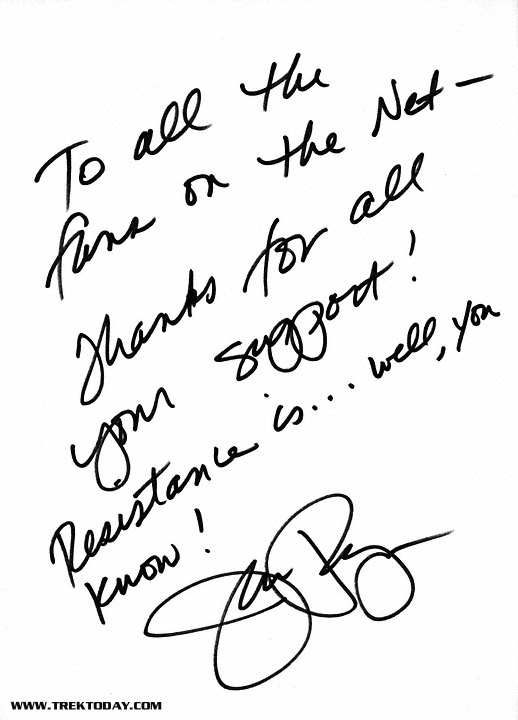 To all the
fans on the Net -
Thanks for all
your support!
Resistance is... well, you
know!
WWW.TREKTODAY.COM